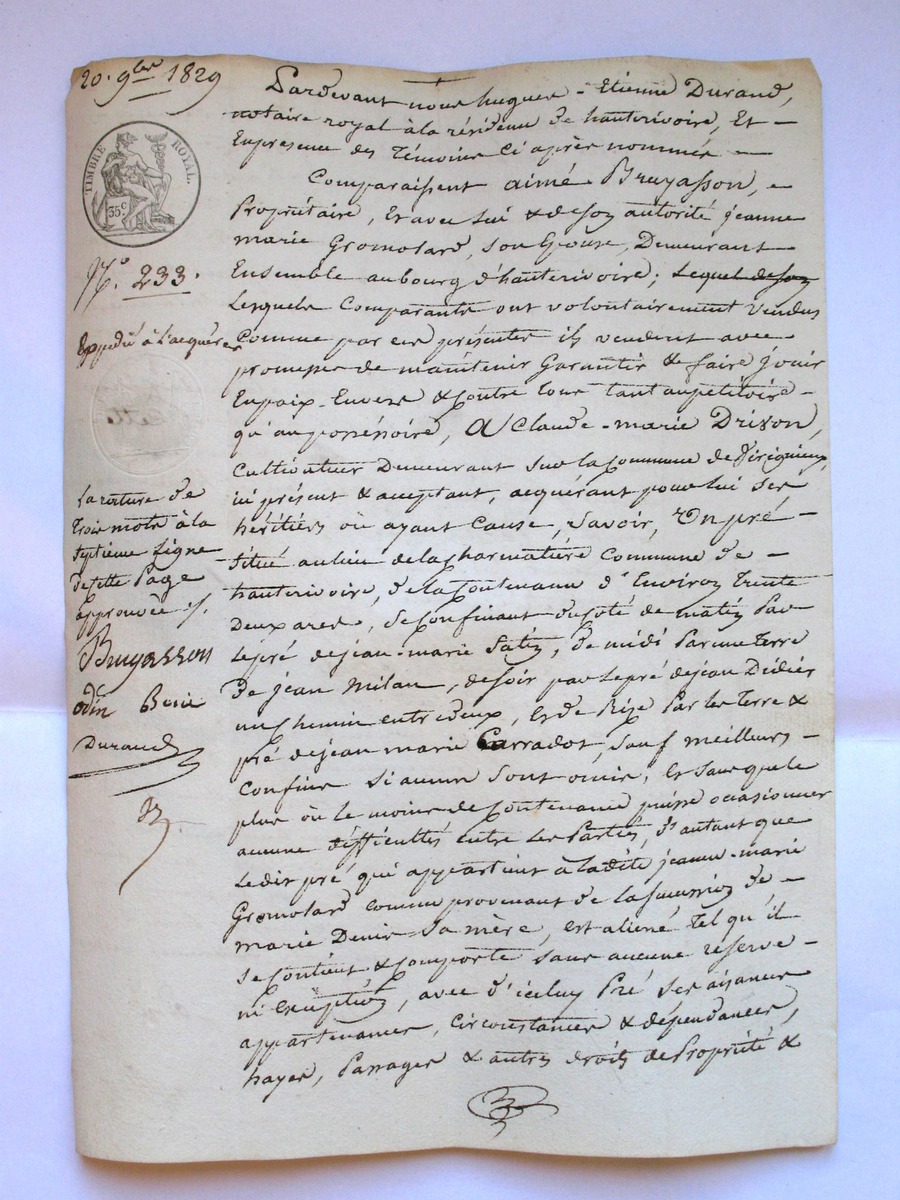 20. 9bre 1829
TIMBRE ROYAL.
35 c
N.° 233.
Expédié à l'acquéreur
La rature de
trois mots à la
septième Ligne
de cette Page
approuvée ./.
Bruyasson
odin Boire
Durand
Pardevant nous hugues-Etienne Durand,
notaire royal à la résidence de hauterivoire, Et
En présence des Témoins Ci après nommés
Comparaissent aimé Bruyasson,
Propriétaire, Et avec Lui & de son autorité jeanne
marie Gromolard, son Epouse, Demeurant
Ensemble au bourg d'hauterivoire; Lequel de son
Lesquels Comparants ont volontairement Vendus
Comme par ces présentes ils vendent avec
promesses de maintenir Garantir & faire jouir
En paix Envers & Contre tous tant au petitoire
qu'au possessoire, A Claude-marie Drivon,
Cultivateur Demeurant sur la Commune de Virigneux,
ici présent & acceptant, acquérant pour Lui ses
héritiers où ayant Cause, Savoir, Un pré
Situé au lieu de la Charmatière Commune de
hauterivoire, de la Contenance d'Environ Trente
Deux ares, se Confinant du Côté de matin Par
Le pré de jean-marie Satin, De midi Par une Terre
De jean Milan, de soir par Le pré de jean Didier
un Chemin entre deux, Et de Bize Par les Terre &
pré de jean marie Carradot, sauf meilleurs
Confins si aucuns sont omis, Et sans que le
plus où le moins de Contenance puisse occasionner
aucune difficultés entre Les Parties, d'autant que
Ledit pré qui appartient à ladite jeanne-marie
Gromolard comme provenant de la succession de
marie Denis sa mère, est aliéné tel qu'il
se Contient & Comporte sans aucune réserve
ni Exception, avec d'icelui Pré ses aisances
appartenances, Circonstances & dépendances,
hayes, Passages & autres droits de Propriété &